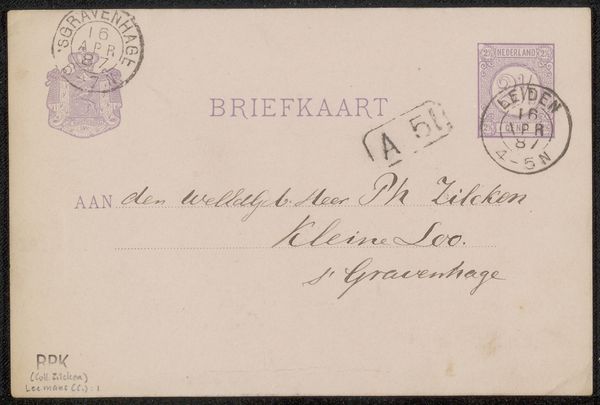 'SGRAVENHAGE
16
APR
87
NEDERLAND
2½
2½
CENT
LEIDEN
16
APR
87
4-5N
BRIEFKAART
A 51
AAN den Weled. Heer Ph Zilcken
Kleine Loo.
s' Gravenhage
RPK
(Coll. Zilcken)
Leemans (C.): 1